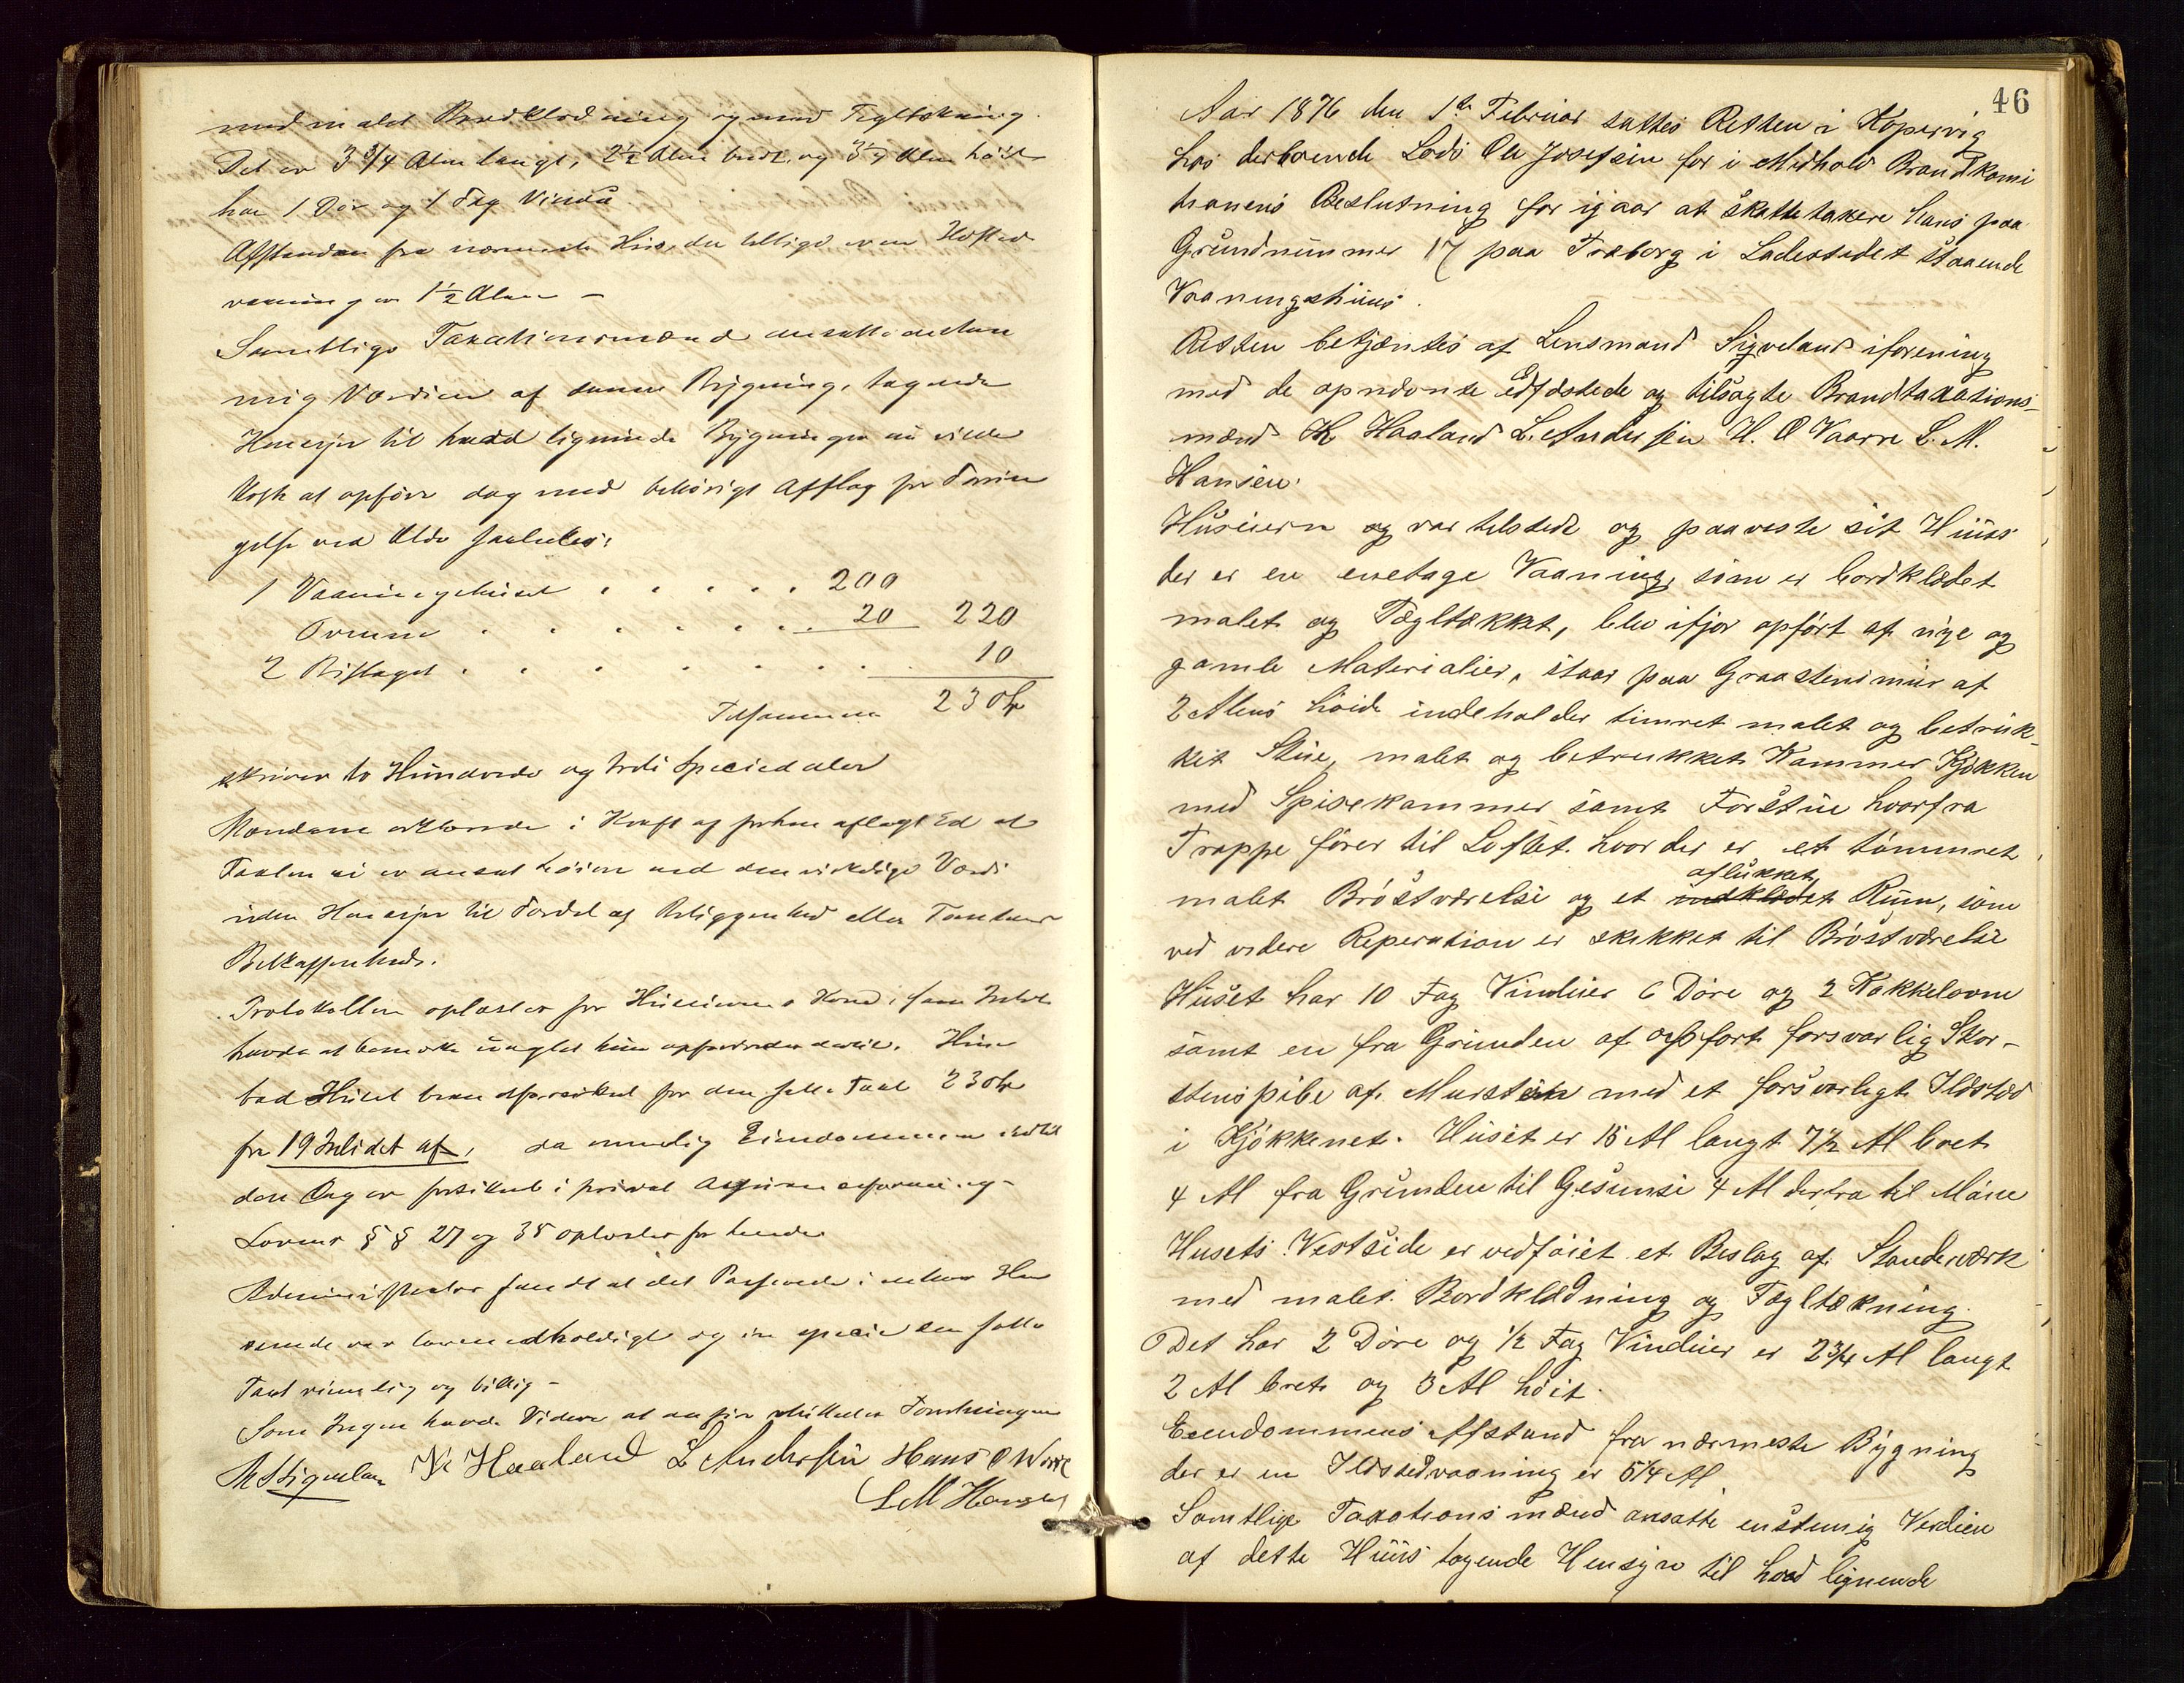 med malet Bordklædning og med Tegltækning.
Det er 3 3/4 Alen langt, 2 1/2 Alen bredt og 3 1/4 Alen høit
har 1 Dør og 1 Fag Vindu.
Afstanden fra nærmeste Hus, der tillige er en Ildsteds
vaaning er 1 1/2 Alen –
Samtlige Taxationsmænd ansatte enstem
mig Værdien af denne Bygning, tagende
Hensyn til hvad lignende Bygninger nu vilde
koste at opføre dog med behørigt Afslag for Forrin
gelse ved Ælde saaledes:
1 Vaaningshuset . . . . . 200
Ovnene . . . . . . . 20 220
2 Bislaget . . . . . . . 10
Tilsammen 230 Sp
skriver to Hundrede og tredi Speciedaler
Mændene erklærede i Kraft af forhen aflagt Ed at
Taxten ei er ansat høiere end den virkelige Værdi
uden Hensyn til Fordel af Beliggenhed eller Tomtens
Beskaffenhed.
Protokollen oplæstes for Huseierens Kone, som Intet
havde at bemærke uagtet hun opfordredes dertil. Hun
bad Huset brandforsikret for den fulde Taxt 230 Sp
fra 19 Juli det af, da nemlig Eiendommen indtil
den Dag er forsikret i privat Assuranceforening –
Lovens § § 27 og 35 oplæstes for hende
Administrator fandt at det Passerede i enhver Hen
seende var lovmedholdigt og in specie den satte
Taxt rimelig og billig –
Som Ingen havde Videre at anføre sluttedes Forretningen
M Sigveland N Haaland L Andersen Hans O Worre
L M Hansen
46
Aar 1876 den 1ste Februar sattes Retten i Kopervig
hos derboende Lods Ole Josefsen for i Medhold Brandkomi
tionens Beslutning for igaar at skatttaxere hans paa
Grundnummer 17 paa Treborg i Ladestedet staaende
Vaaningshuus.
Retten betjæntes af Lensmand Sigveland iforening
med de opnævnte edfæstede og tilsagte Brandtaxations-
mænd N Haaland L. Andersen H. O Vaarre L. M.
Hansen.
Huseieren og var tilstede og paaveste sit Huus
der er en enetage Vaaning, som er bordklædet
malet og Tægltækket, blev ifjor opført af nye og
gamle Materialier, staar paa Graastensmur af
2 Alens høide indeholder timret malet og betruk-
ket Stue, malet og betrukket Kammer Kjøkken
med Spisekammer samt Forstue hvorfra
Trappe fører til Loftet hvor der er et tømmret
aflukket
malet Brøstværelse og et indklædet Rum, som
ved videre Reperation er skikket til Brøstværelse
Huset har 10 Fag Vinduer 6 Døre og 2 Kakkelovne
samt en fra Grunden af opført forsvarlig Skor-
stenspibe af Mursten med et forsvarligt Ildsted
i Kjøkkenet. Huset er 15 Al langt 7 1/2 Al bret
4 Al fra Grunden til Gesimsi 4 Al derfra til Møne
Husets Vestside er vedføiet et Beslag af Standerværk
med malet Bordklædning og Tægltækning.
Det har 2 Døre og 1/2 Fag Vinduer er 2 3/4 Al langt
2 Al bret og 3 Al høit.
Eiendommens Afstand fra nærmeste Bygning
der er en Ildstedvaaning er 5 1/4 Al
Samtlige Taxationsmænd ansatte enstemig Verdien
af dette Huus tagende Hensyn til hvad lignende